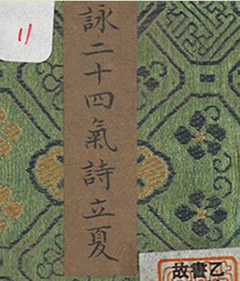 11
詠二十四氣詩立夏
故書乙